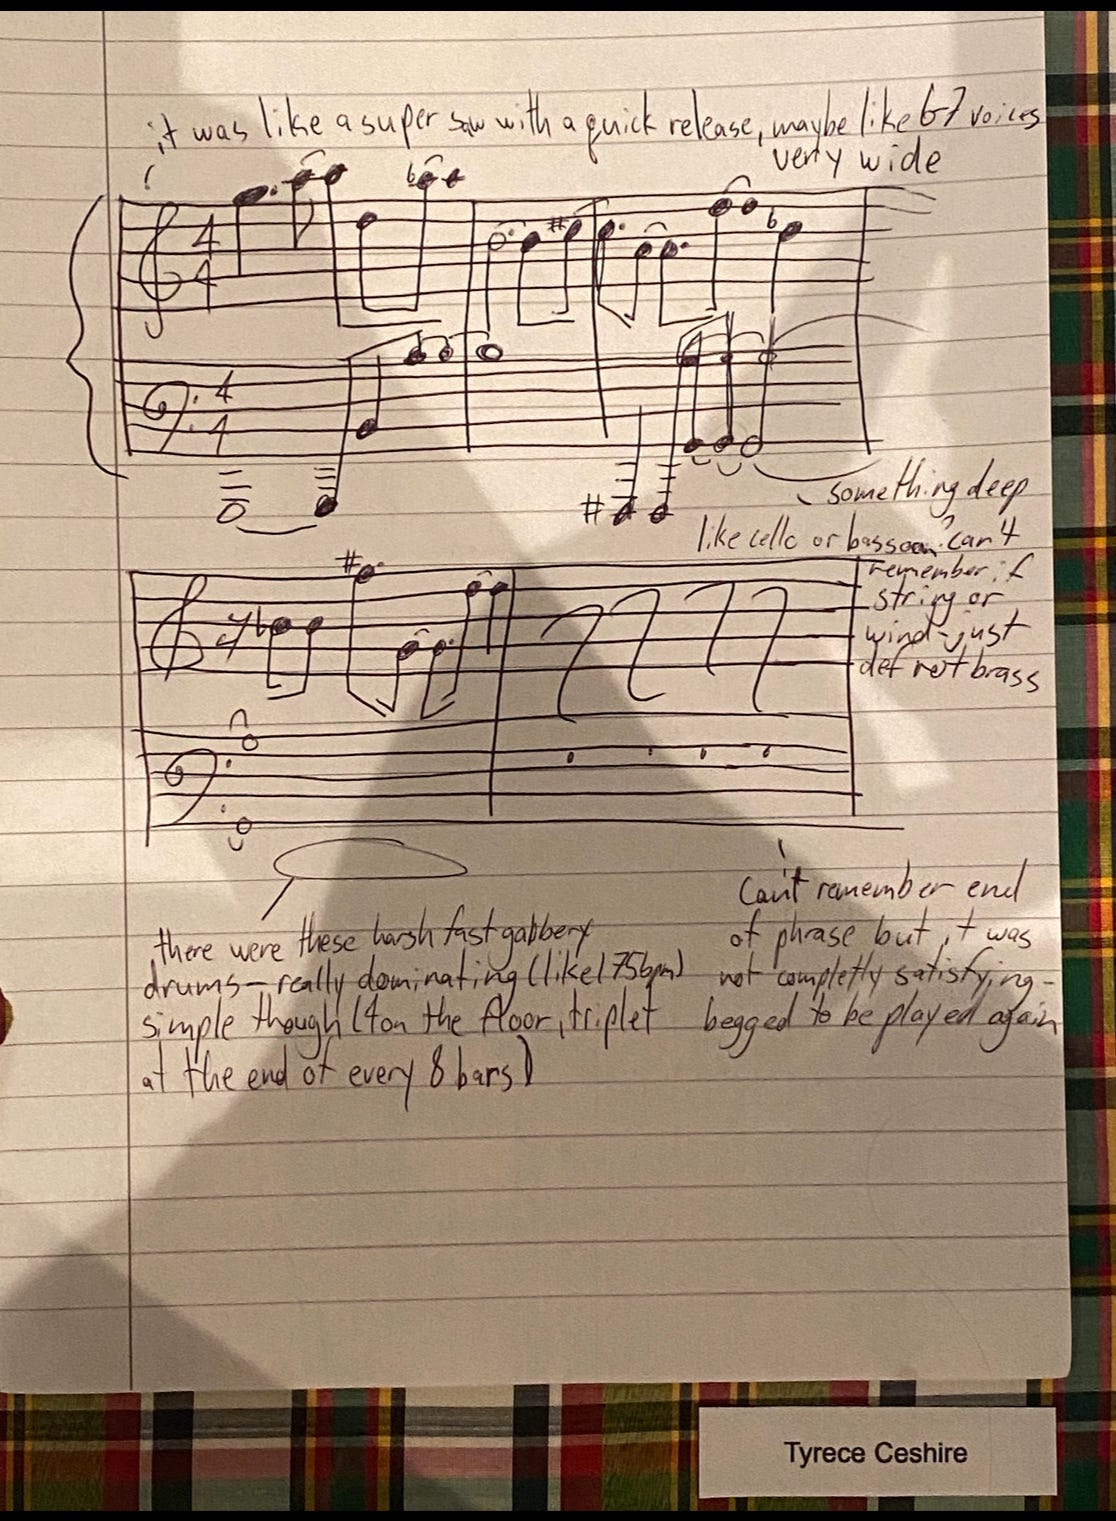 it was like a super saw with a quick release, maybe like 6-7 voices
very wide
4
4
4
4
something deep
like cello or bassoon? can't
remember if
string or
wind - just
def not brass
there were these harsh fast gabbery
drums - really dominating (like 175bpm)
simple though (4 on the floor, triplet
at the end of every 8 bars)
Can't remember end
of phrase but it was
not completly satisfying -
begged to be played again
Tyrece Ceshire